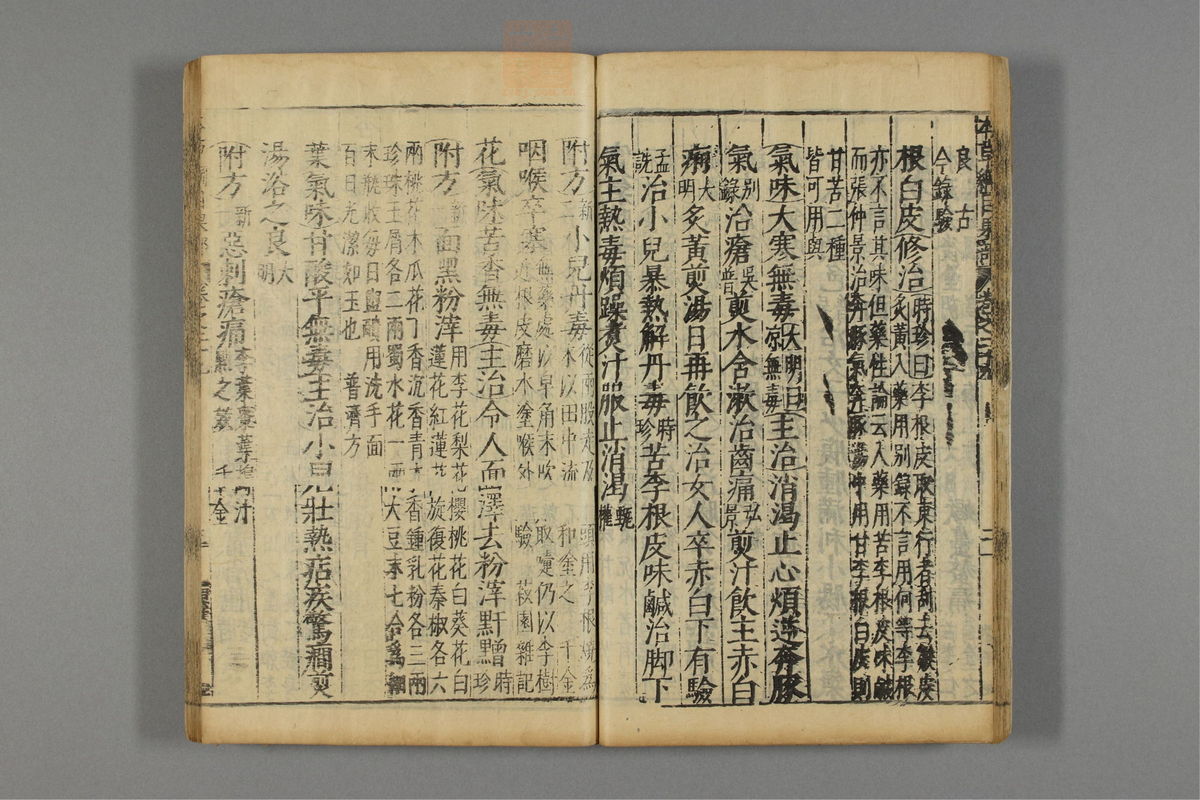 良古
今錄驗
根白皮修治時珍曰李根皮取東行者刮去皺皮
炙黃入藥用別錄不言用何等李根
亦不言其味但藥性論云入藥用苦李根皮味鹹
而張仲景治奔豚氣奔豚湯中用甘李根白皮則
甘苦二種
皆可用與
氣味大寒無毒大明曰
涼無毒主治消渴止心煩逆奔豚
氣別
錄治瘡吳
普煎水含漱治齒痛弘
景煎汁飲主赤白
痢大
明炙黃煎湯日再飲之治女人卒赤白下有驗
孟
詵治小兒暴熱解丹毒時
珍苦李根皮味鹹治脚下
氣主熱毒煩躁煮汁服止消渴甄
權
附方新
二小兒丹毒從兩股走及
頭用李根燒為
末以田中流
和塗之 千金
咽喉卒塞無藥處以皂角末吹
取嚏仍以李樹
近根皮磨水塗喉外
驗 菽園雜記
花氣味苦香無毒主治令人面澤去粉滓䵟䵳時
珍
附方面黑粉滓用李花梨花
櫻桃花白葵花白
蓮花紅蓮花
旋復花秦椒各六
兩桃花木瓜花丁香沉香青木
香鍾乳粉各三兩
珍珠玉屑各二兩蜀水花一兩
大豆末七合為細
末瓶收每日盥靧用洗手面
百日光潔如玉也 普濟方
葉氣味甘酸平無毒主治小兒壯熱痁疾驚癇煎
湯浴之良大
明
附方新惡刺瘡痛李葉棗葉
汁
點之 千金